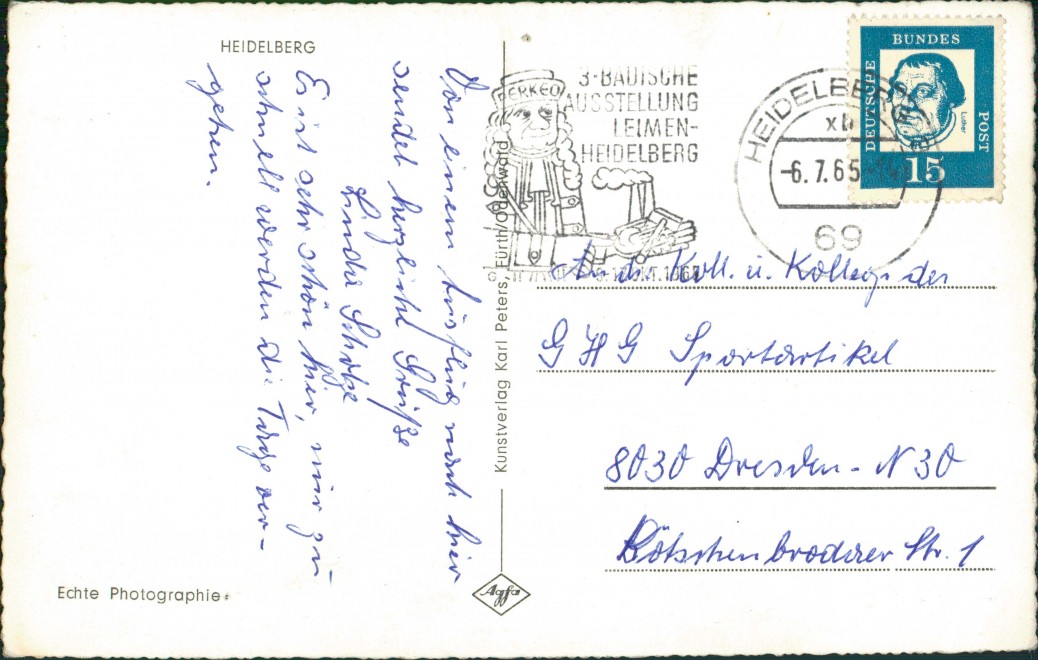 HEIDELBERG
Von einem Ausflug nach hier
sendet herzliche Grüße
Linda
Es ist sehr schön hier, nur zu
schnell werden die Tage ver-
gehen.
Echte Photographie
Kunstverlag Karl Peters, Fürth/Odenwald
Agfa
PERKEO
3·BADISCHE
AUSSTELLUNG
LEIMEN-
HEIDELBERG
HEIDELBERG
xb
-6.7.65
69
DEUTSCHE
BUNDES
POST
Luther
15
An die Koll. u. Kolleg. der
G H G Sportartikel
8030 Dresden - N 30
Kötschenbrodaer Str. 1